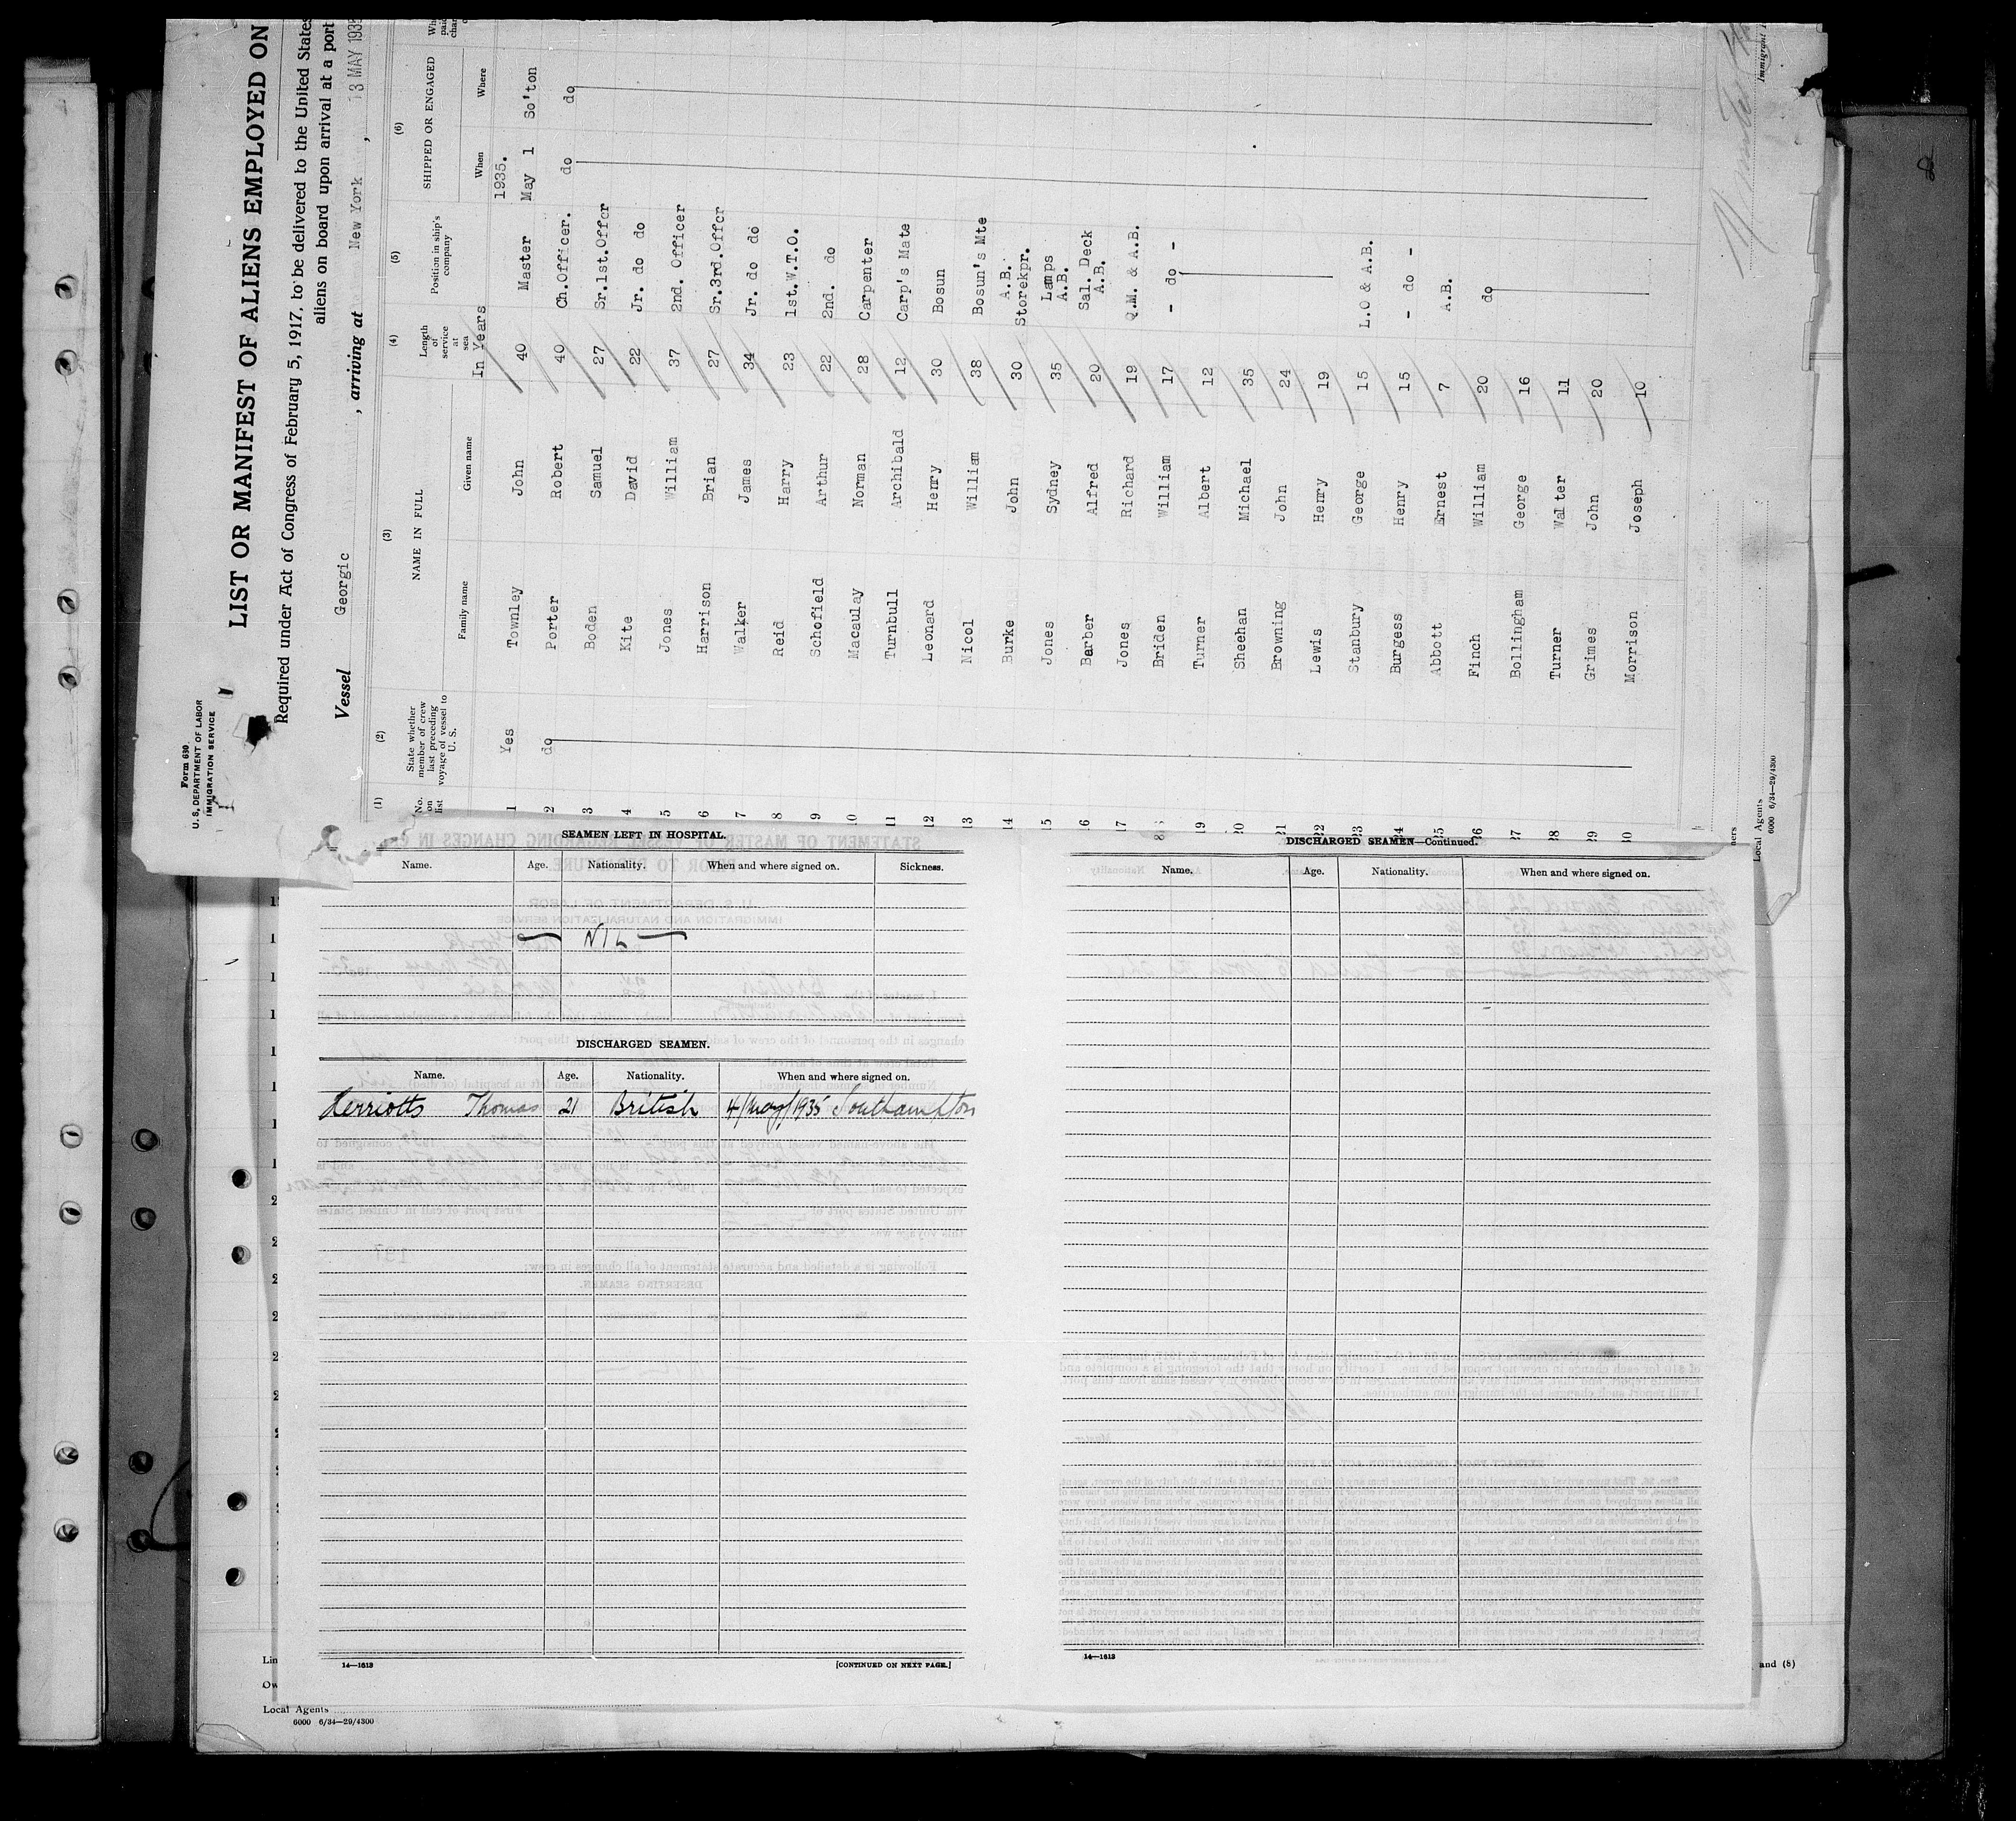 Form 630.
U. S. DEPARTMENT OF LABOR
IMMIGRATION SERVICE
LIST OR MANIFEST OF ALIENS EMPLOYED ON
Required under Act of Congress of February 5, 1917, to be delivered to the United States
aliens on board upon arrival at a port
Vessel Georgic , arriving at New York , 13 MAY 1935
(1) (2) (3) (4) (5) (6)
No. on list
State whether member of crew last preceding voyage of vessel to U. S.
NAME IN FULL
Family name Given name
Length of service at sea
Position in ship's company
SHIPPED OR ENGAGED
When Where
In Years 1935.
1 Yes Townley John 40 Master May 1 So'ton
2 do Porter Robert 40 Ch.Officer. do do
3 Boden Samuel 27 Sr.1st.Offcr
4 Kite David 22 Jr. do do
5 Jones William 37 2nd. Officer
6 Harrison Brian 27 Sr.3rd.Offcr
7 Walker James 34 Jr. do do
8 Reid Harry 23 1st.W.T.O.
9 Schofield Arthur 22 2nd. do
10 Macaulay Norman 28 Carpenter
11 Turnbull Archibald 12 Carp's Mate
12 Leonard Henry 30 Bosun
13 Nicol William 38 Bosun's Mte
14 Burke John 30 A.B. Storekpr.
15 Jones Sydney 35 Lamps A.B.
16 Barber Alfred 20 Sal. Deck A.B.
17 Jones Richard 19 Q.M. & A.B.
18 Briden William 17 - do -
19 Turner Albert 12
20 Sheehan Michael 35
21 Browning John 24
22 Lewis Henry 19
23 Stanbury George 15 L.O & A.B.
24 Burgess Henry 15 - do -
25 Abbott Ernest 7 A.B.
26 Finch William 20 do
27 Bollingham George 16
28 Turner Walter 11
29 Grimes John 20
30 Morrison Joseph 10
Local Agents
6000 6/34—29/4300
SEAMEN LEFT IN HOSPITAL.
Name. Age. Nationality. When and where signed on. Sickness.
NIL
DISCHARGED SEAMEN.
Name. Age. Nationality. When and where signed on.
Herriotts Thomas 21 British 4/May/1935 Southampton
14—1613
[CONTINUED ON NEXT PAGE.]
DISCHARGED SEAMEN—Continued.
Name. Age. Nationality. When and where signed on.
14—1613
and (8)
Local Agents
6000 6/34—29/4300